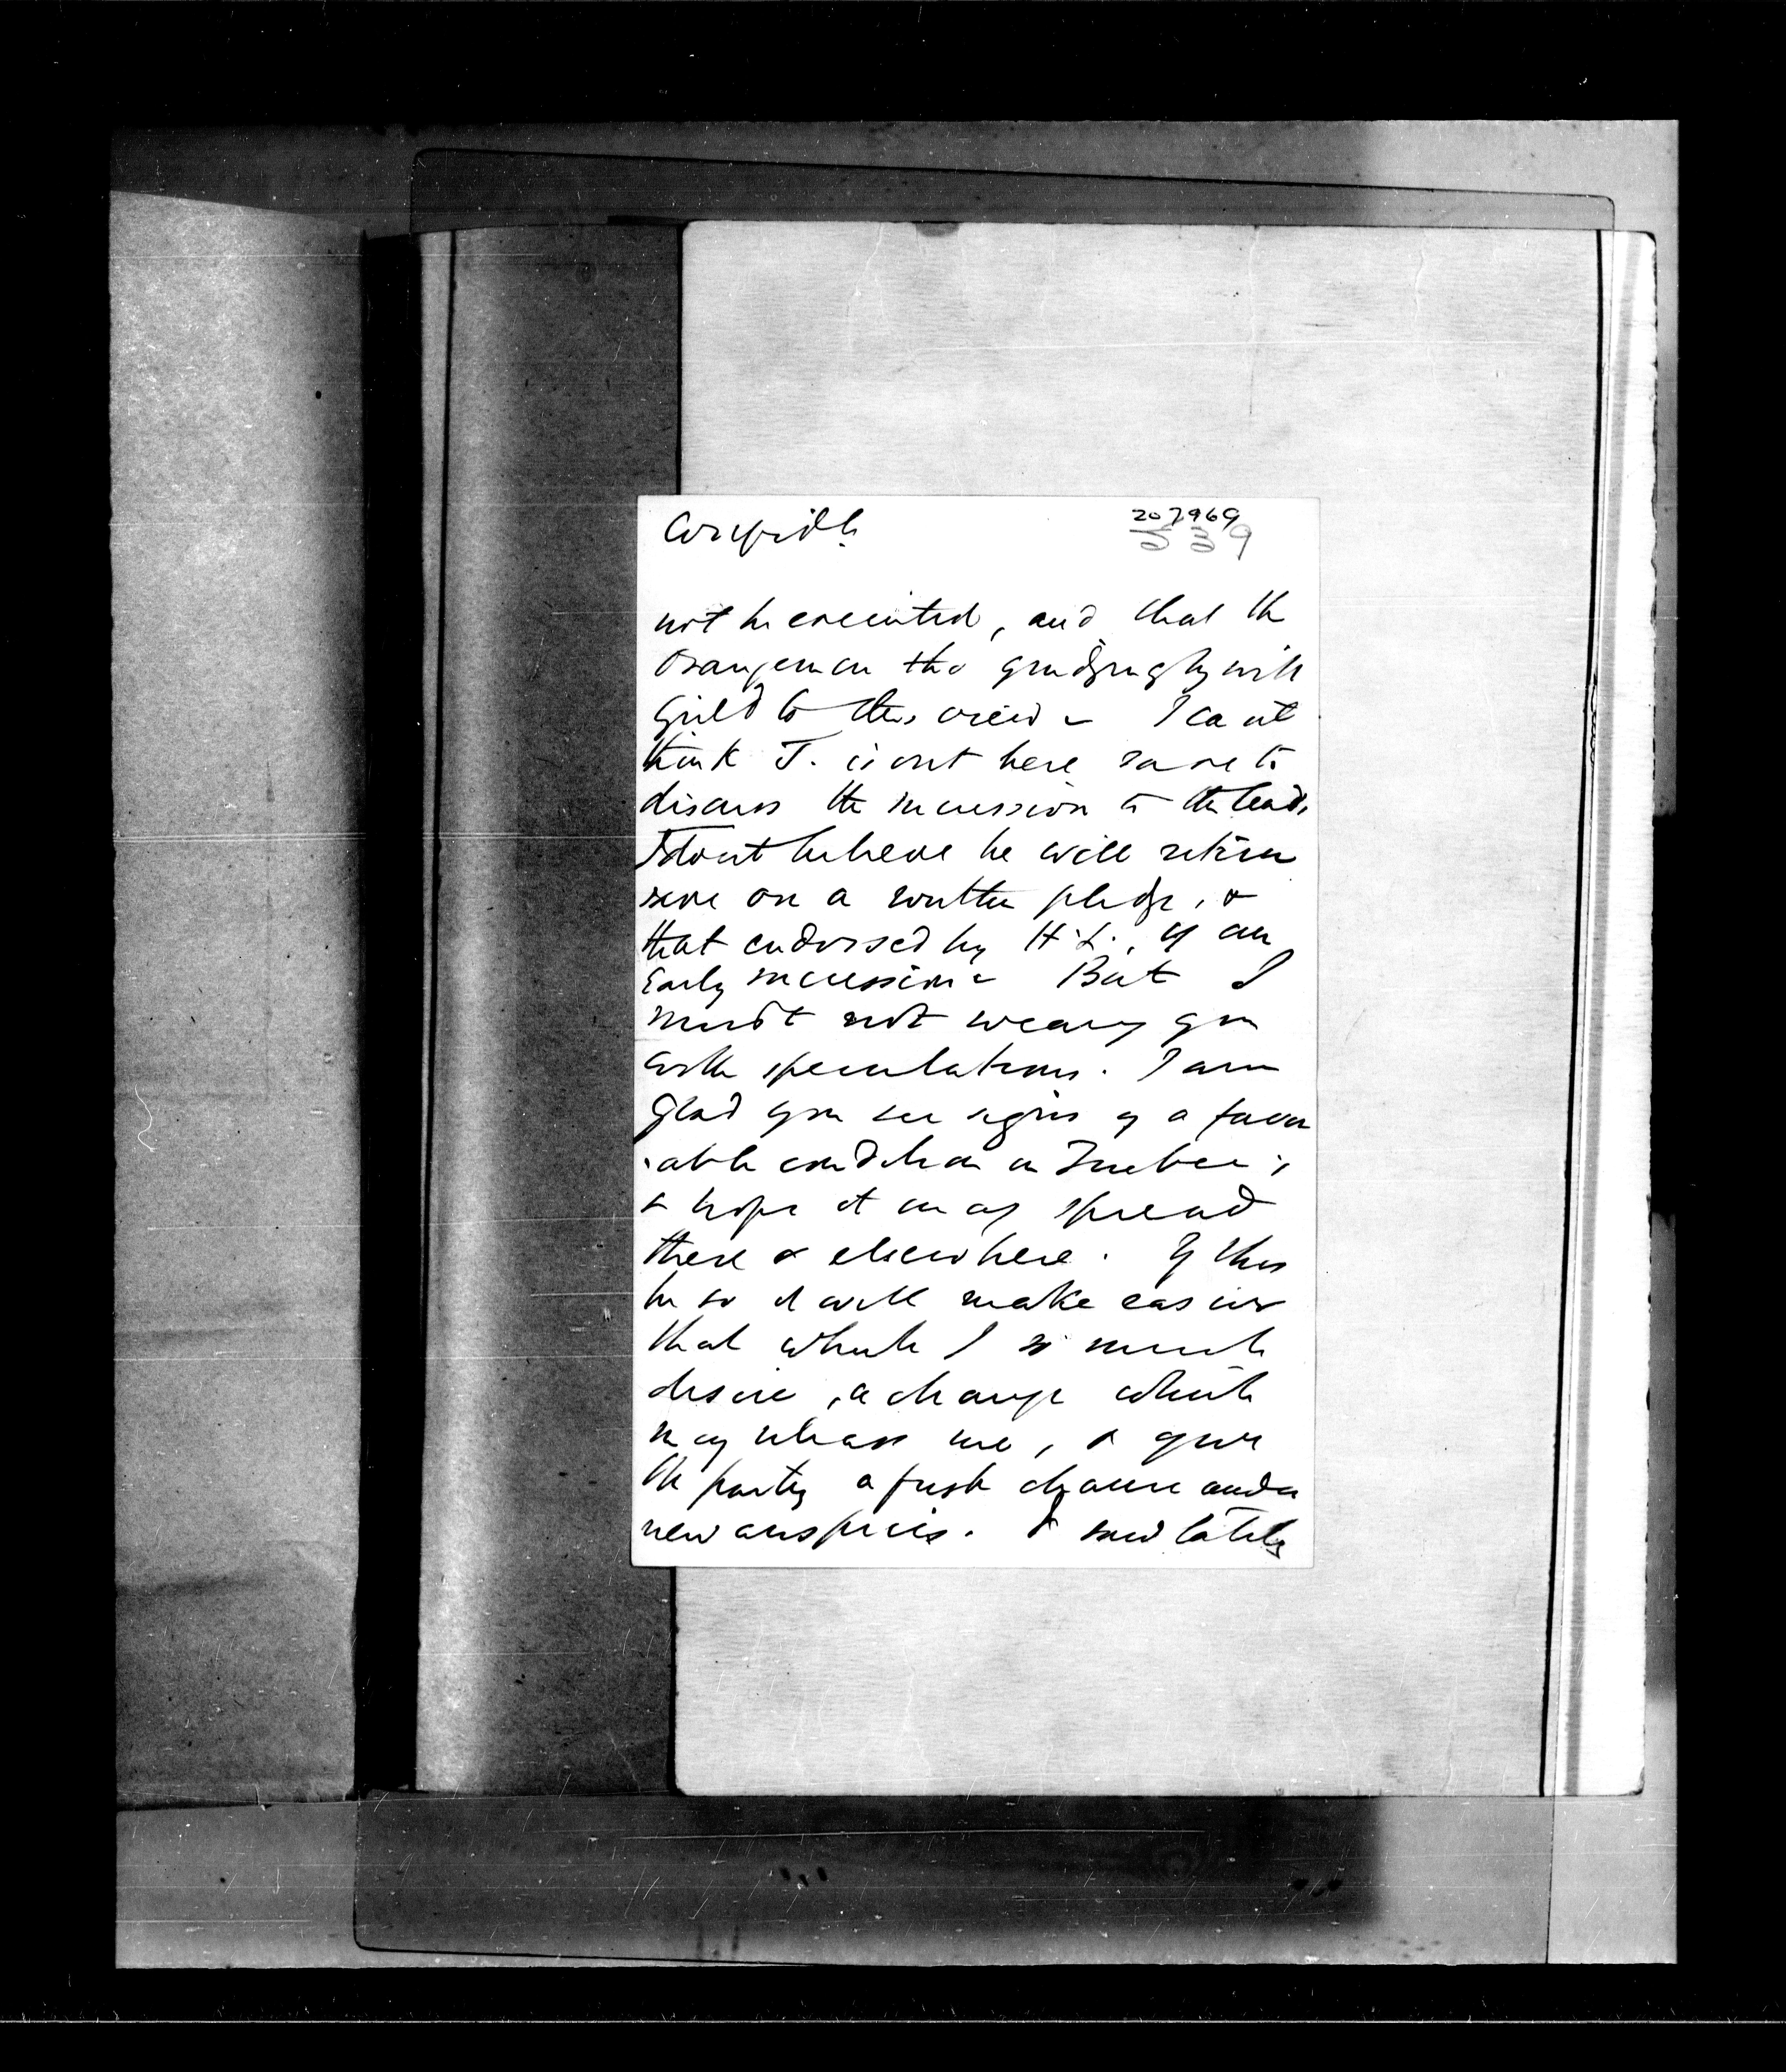 Confidl.
207969
539
not be executed, and that the
Orangemen tho grudgingly will
yield to this view – I cant
think T. is out here save to
discuss the succession to the leads
I dont believe he will return
save on a written pledge, &
that endorsed by H.L., of an
Early succession – But I
must not weary you
with speculations. I am
Glad you see signs of a favor
-able condition in Quebec;
& hope it may spread
there & elsewhere. If this
be so it will make easier
that which I so much
desire, a change which
may release me, & give
the party a fresh chance under
new auspices. I saw lately